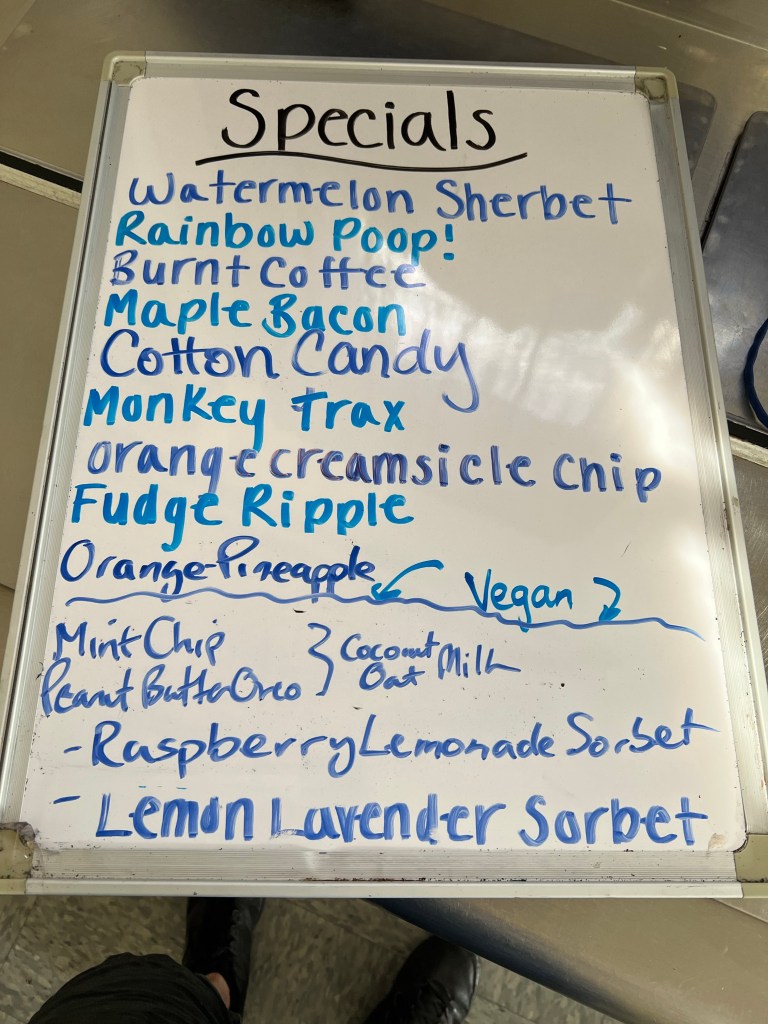 Specials
Watermelon Sherbet
Rainbow Poop!
Burnt Coffee
Maple Bacon
Cotton Candy
Monkey Trax
orange creamsicle chip
Fudge Ripple
Orange-Pineapple
Vegan
Mint Chip
Peanut Butter Oreo
Coconut
Oat Milk
- Raspberry Lemonade Sorbet
- Lemon Lavender Sorbet